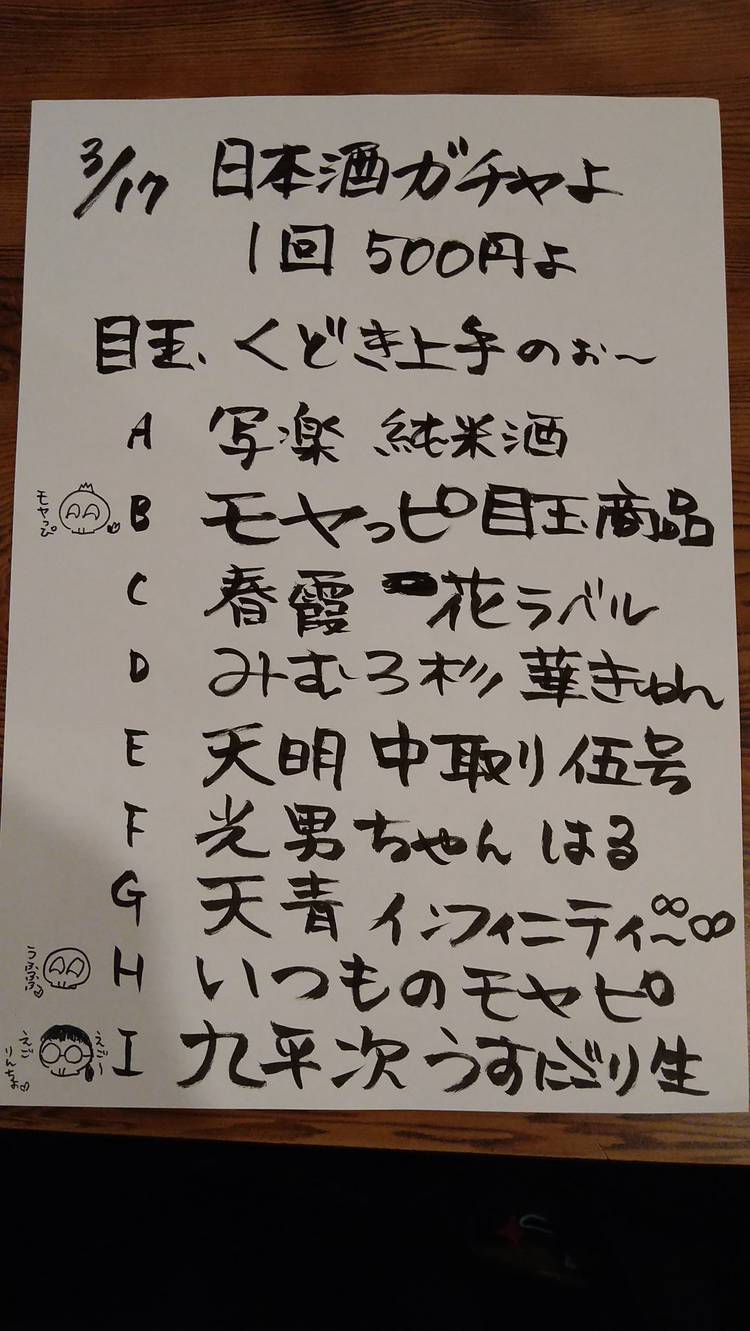 3/17 日本酒ガチャよ
1回 500円よ
目玉、くどき上手のぉ〜
A 写楽 純米酒
モヤっぴ
B モヤっピ目玉商品
C 春霞 花ラベル
D みむろ杉 華きゅん
E 天明 中取り 伍号
F 光男ちゃん はる
G 天青 インフィニティ〜∞∞
H いつものモヤピ
I 九平次 うすにごり生